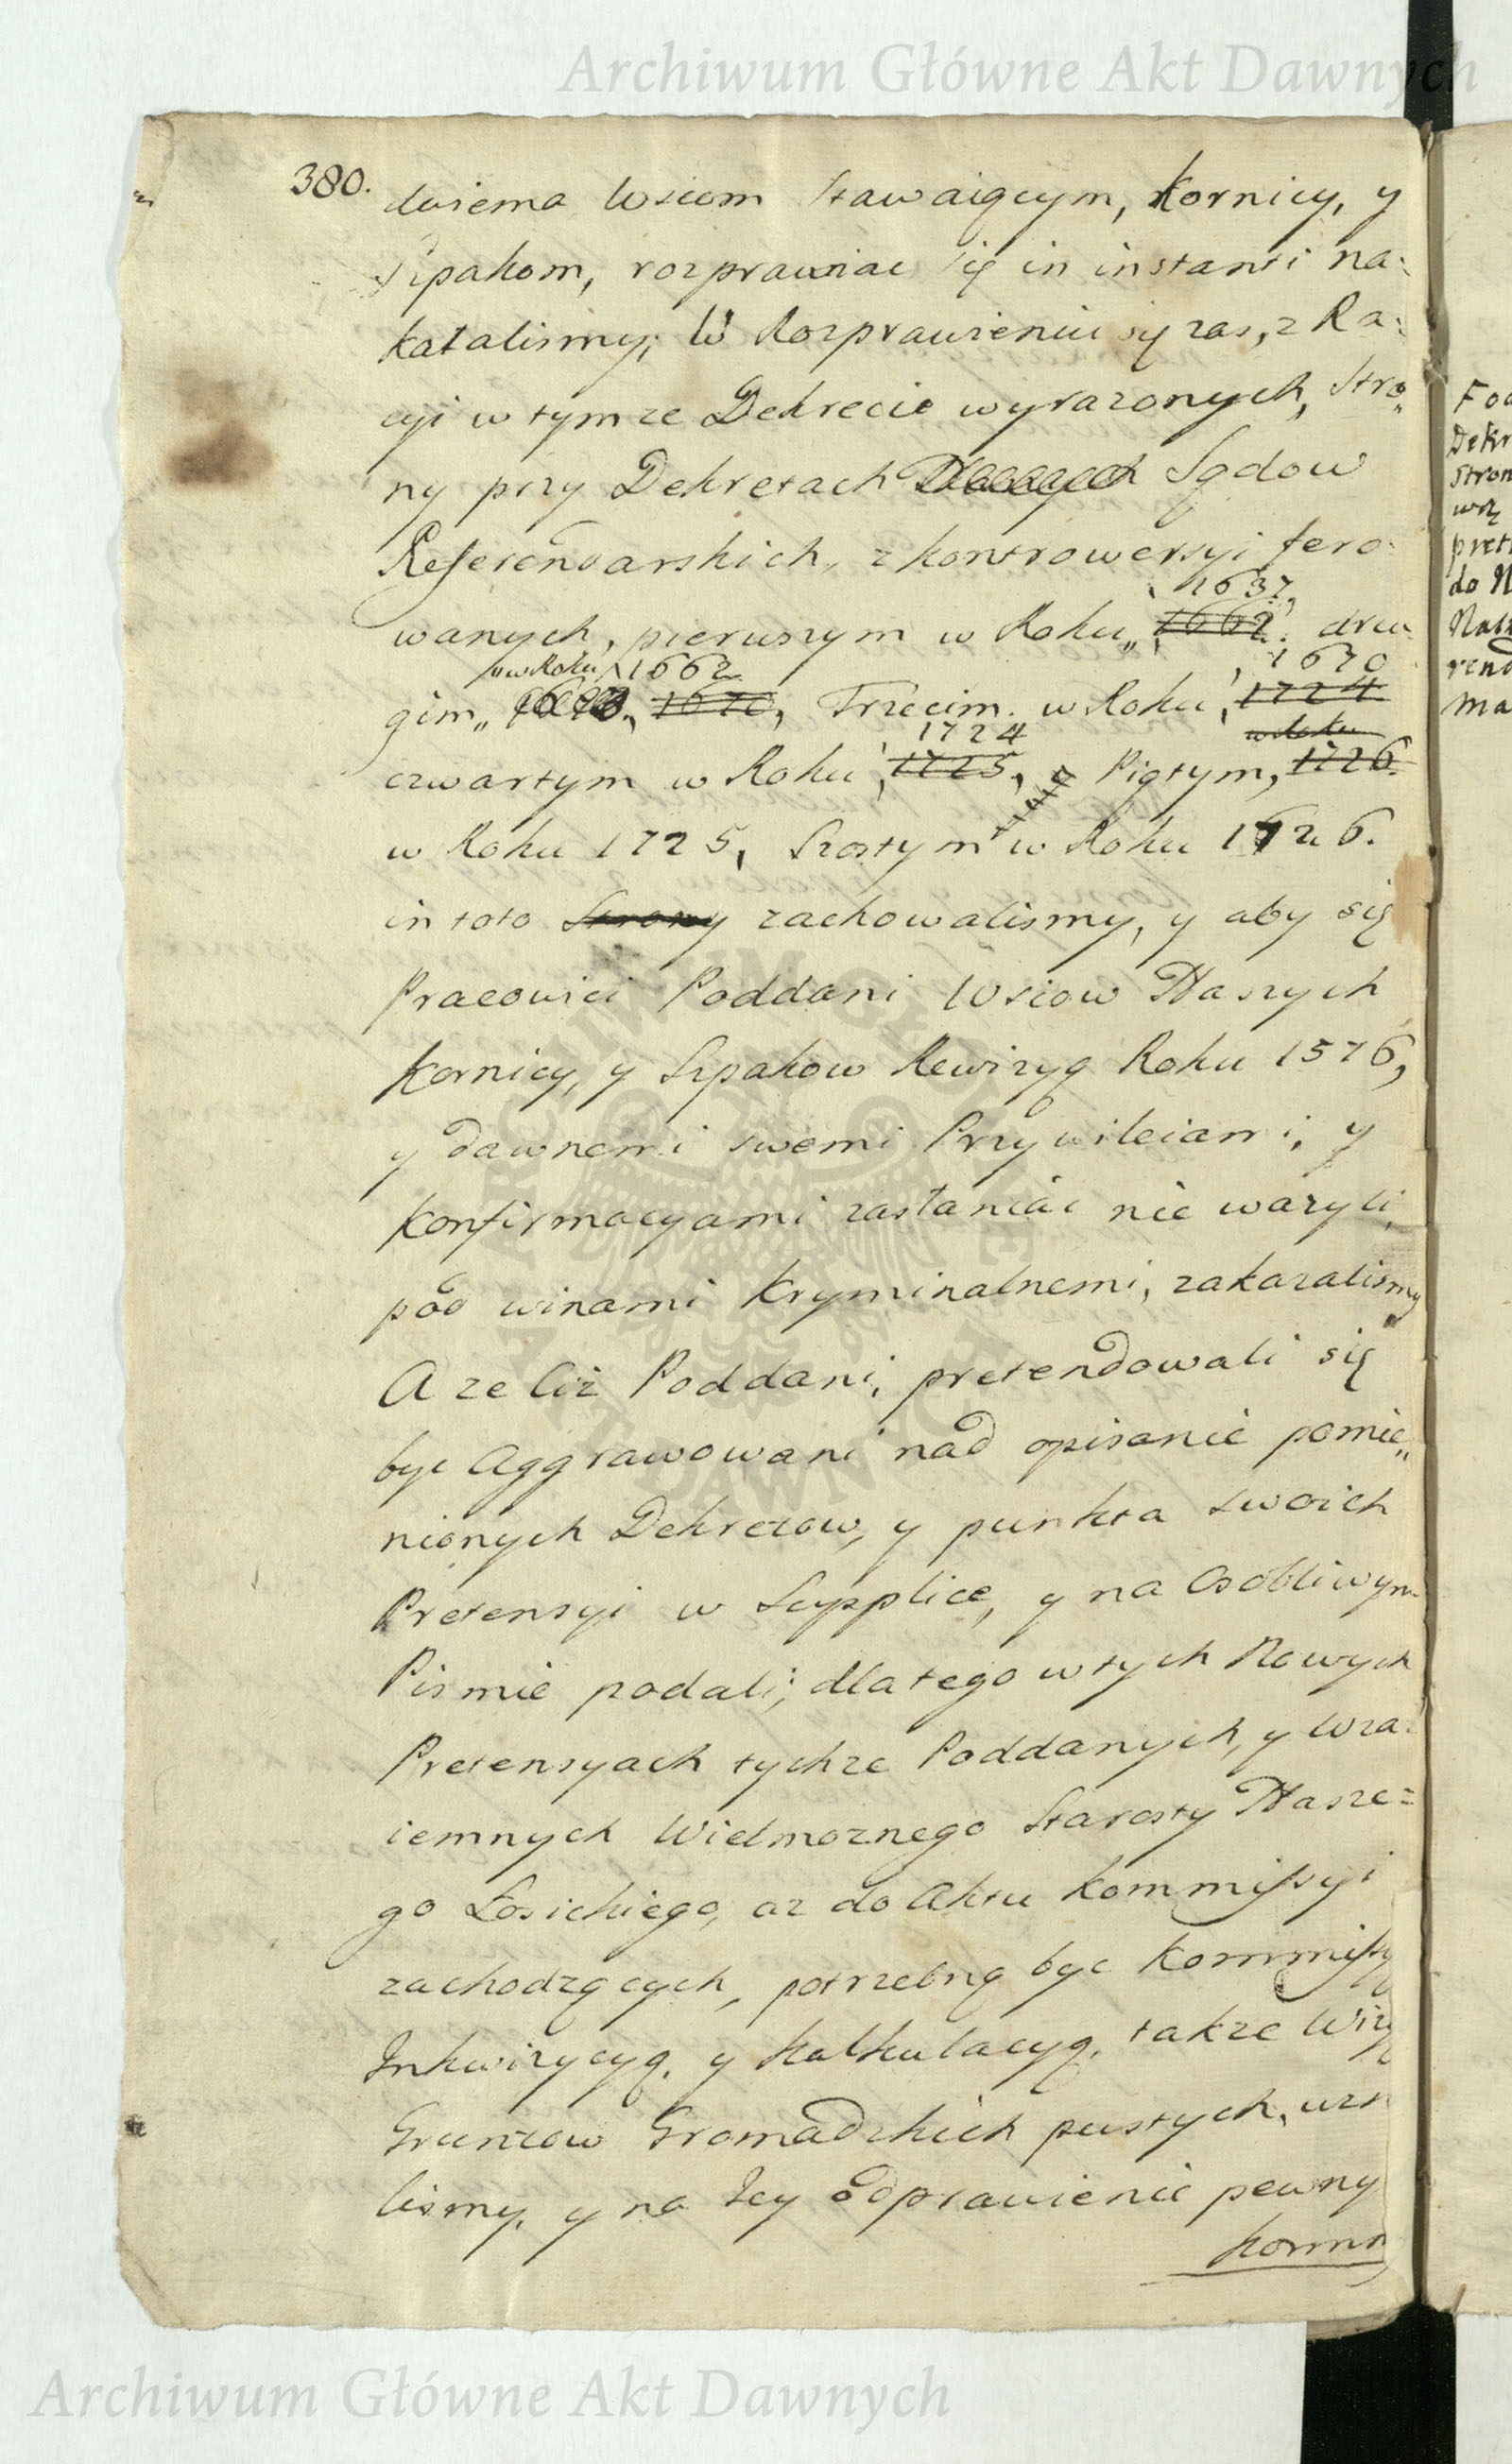 Archiwum Główne Akt Dawnych
380.
dwiema Wsiom stawaiącym, Kornicy, y
Szpakom, rozprawiac się in instanti na-
kazalismy; W Rozprawieniu się zas, z Ra-
cyi w tymze Dekrecie wyrazonych, Stro„
ny przy Dekretach Naszych Sądow
Referendarskich, z kontrowersyi fero-
1637,
wanych, pierwszym w Roku„ 1662. dru
w Roku 1662 1670
gim„ 1670, Trzecim. w Roku, 1724
1724 w Roku
czwartym w Roku, 1725, a Piątym, 1726.
w Roku 1725, Szostym w Roku 1726.
in toto Strony zachowalismy, y aby się
Pracowici Poddani Wsiow Naszych
Kornicy, y Szpakow Rewizyą Roku 1576,
y dawnemi swemi Przywileiami, y
Konfirmacyami zastaniać nie wazyli,
pod winami Kryminalnemi, zakazalismy
A ze Ciż Poddani, pretendowali się
byc Aggrawowani nad opisanie pomie„
nionych Dekretow, y punkta swoich
Pretensyi w Supplice, y na Osobliwym
Pismie podali; dlatego w tych Nowych
Pretensyach tychze Poddanych, y Wza-
iemnych Wielmoznego Starosty Nasze=
go Łosickiego, az do Aktu Kommissyi
zachodzących, potrzebną byc Kommissy
Inkwizycyą, y Kalkulacyą, takze Wizy
Gruntow Gromadzkich pustych, uzn
lismy, y na Iey odprawienie pewny
komm
Dekr
Stron
pret
do N
rend
ma
ARCHIWUM GŁÓWNE AKT DAWNYCH
Archiwum Główne Akt Dawnych